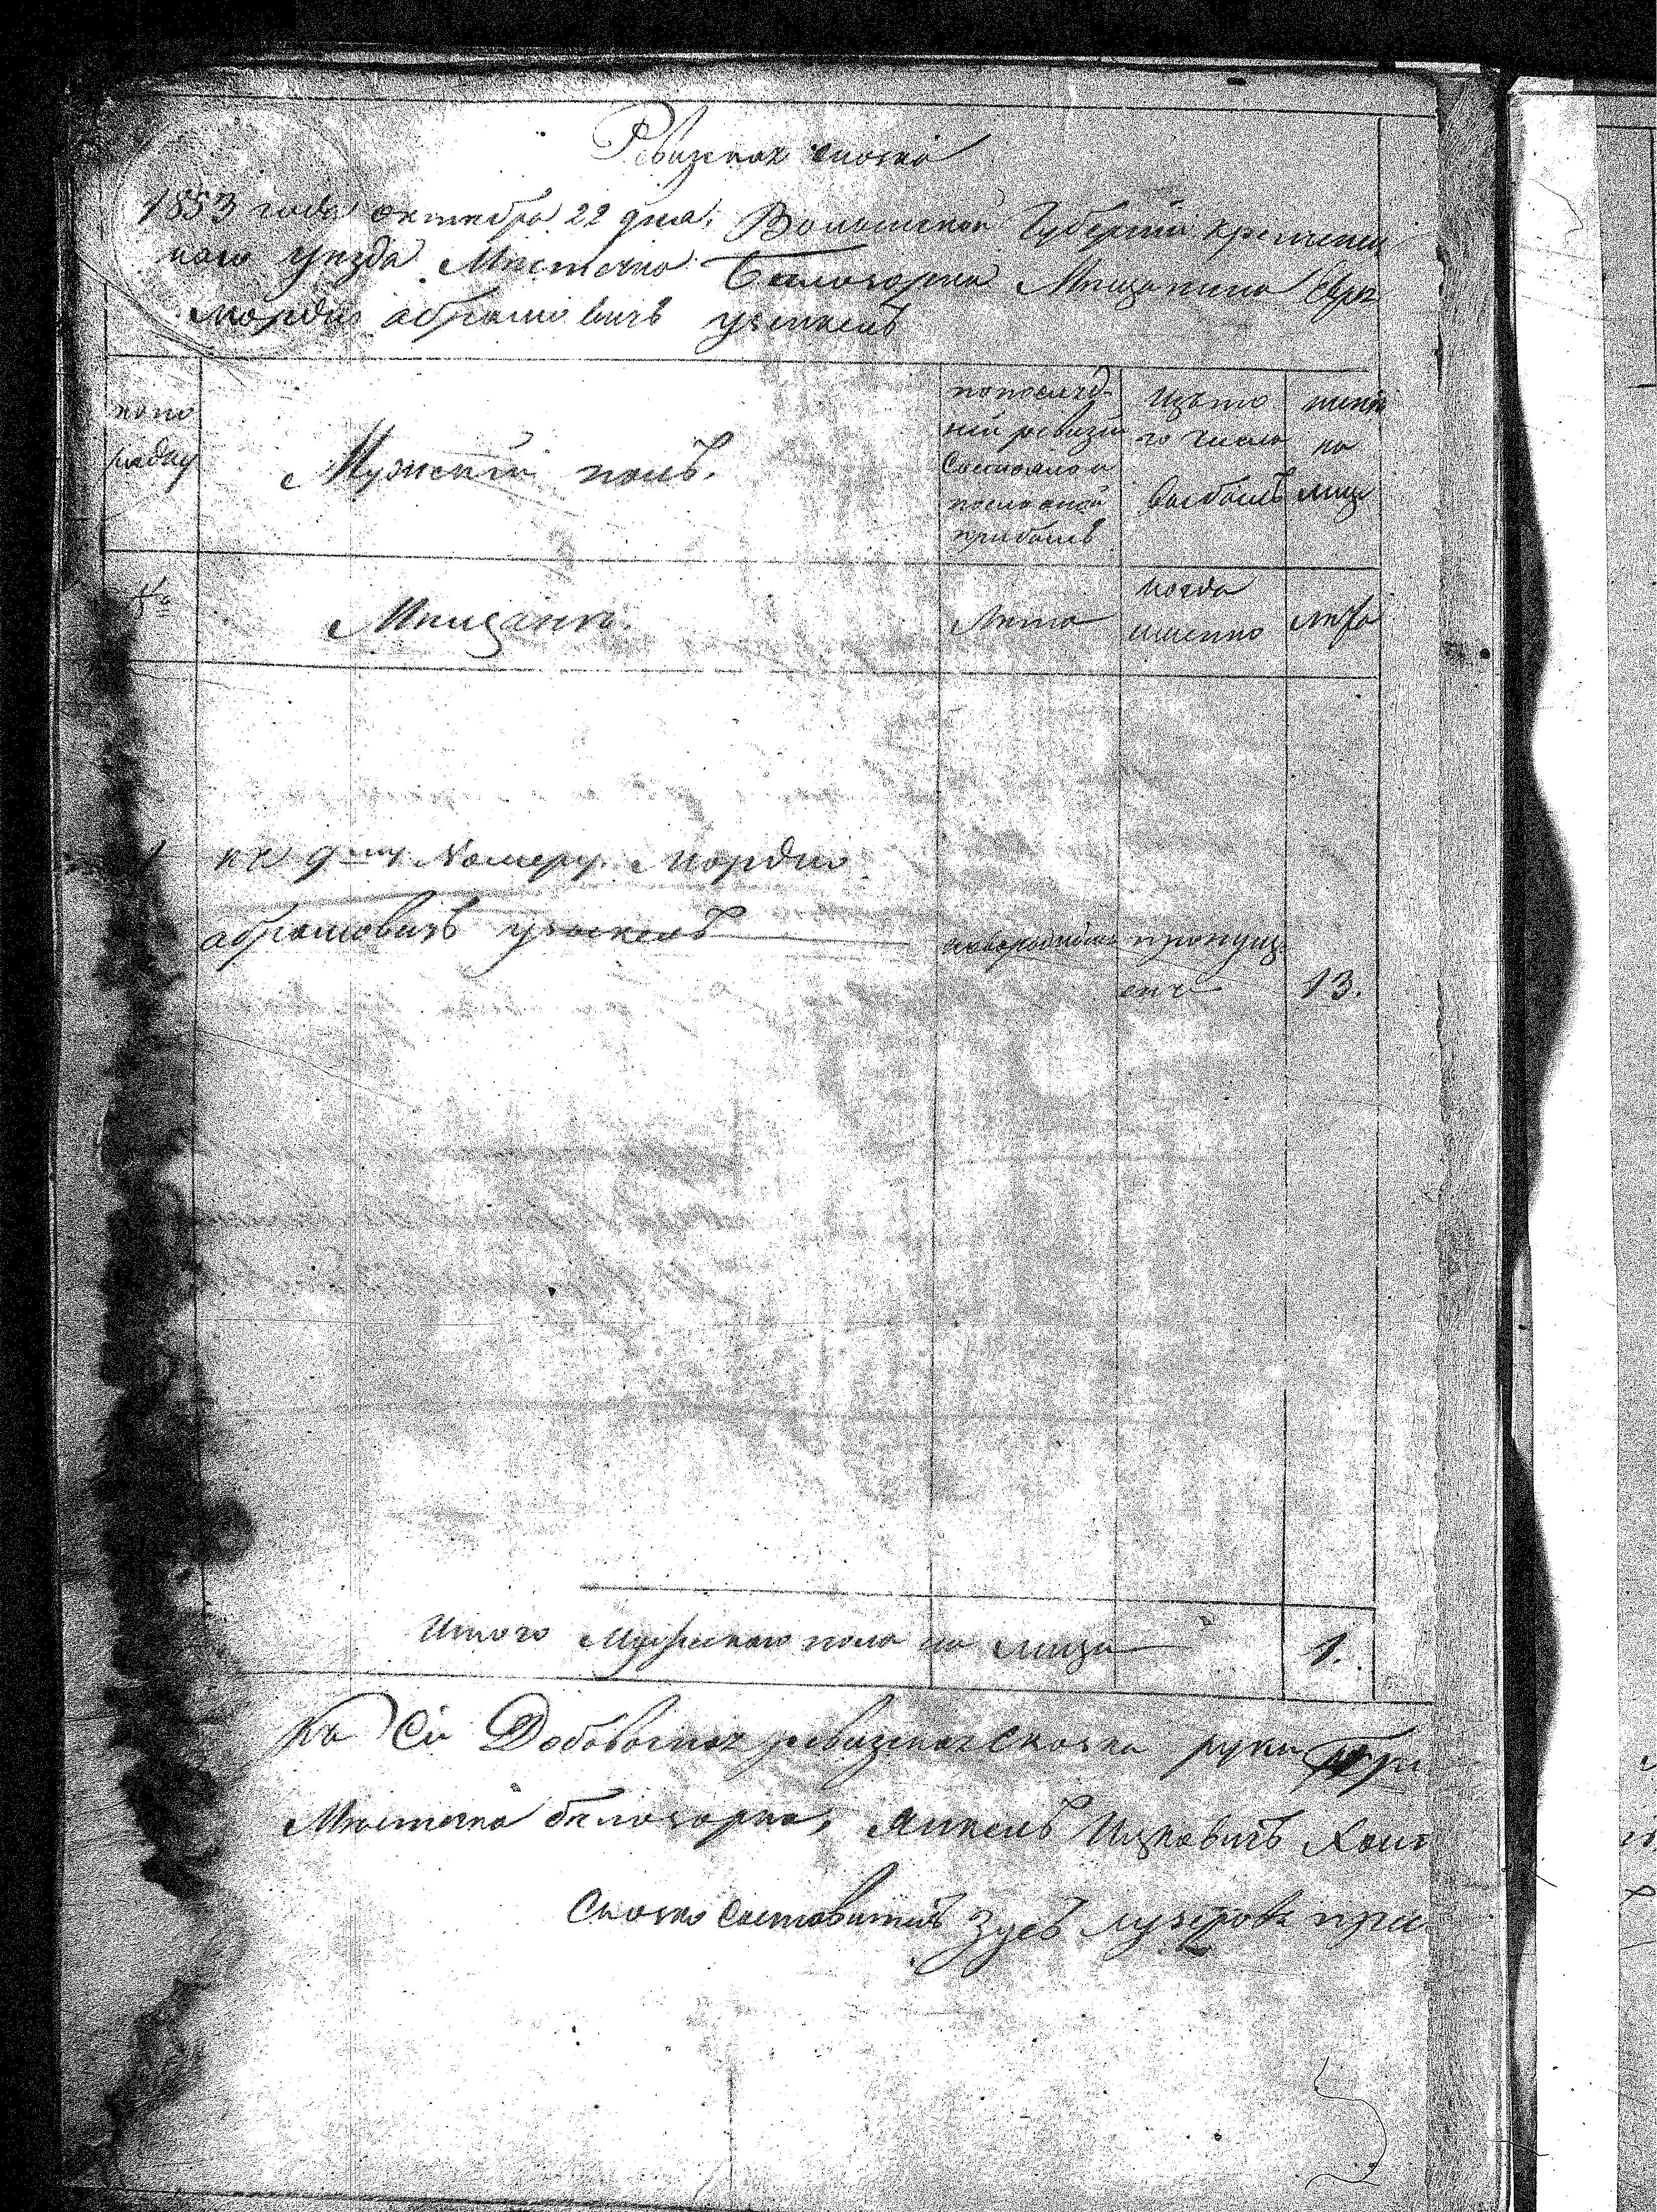 Ревизская сказка
1853 года октября 22 дня, Волынской Губернии Кременец
каго уезда Местечка Белозорка Мещанина Евре
Мордко Абрамовичъ
по по
рядку
Мужеский полъ.
по послед
ней ревизии
Состояло и
после оной
прибылъ
Изъ то
го числа
выбылъ
ныне
на
лицо
№
Мещане.
Лета
когда
именно
Лета
1
къ 9му Номеру Мордко
Абрамовичъ
пропущ
енъ
13.
Итого Мужескаго пола на лицо
1.
Къ Сей Добавочная ревизская Сказка руку
Местечка Белозорка, Янкель Ицковичъ
Сказку Составилъ Зусь